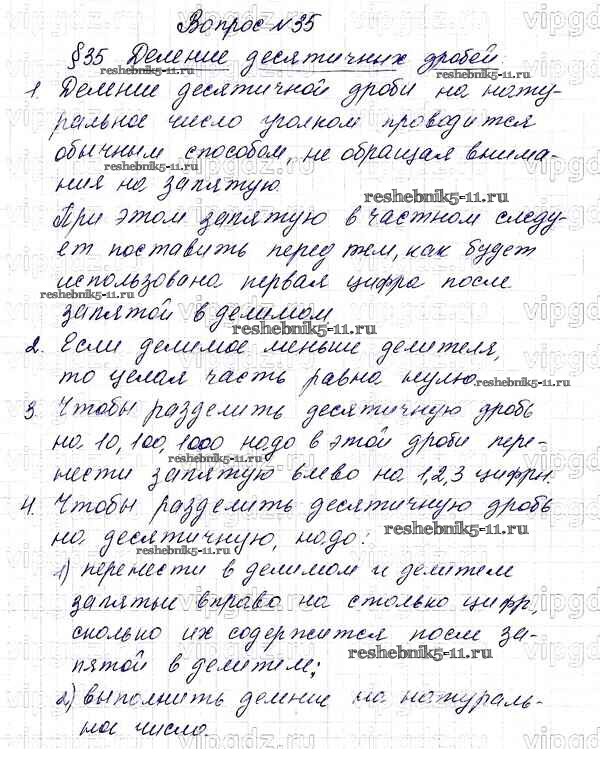 Вопрос №35
§35 Деление десятичных дробей.
1. Деление десятичной дроби на нату-
ральное число уголком проводится
обычным способом, не обращая внима-
ния на запятую.
При этом запятую в частном следу-
ет поставить перед тем, как будет
использована первая цифра после
запятой в делимом.
2. Если делимое меньше делителя,
то целая часть равна нулю.
3. Чтобы разделить десятичную дробь
на 10, 100, 1000 надо в этой дроби пере-
нести запятую влево на 1,2,3 цифры.
4. Чтобы разделить десятичную дробь
на десятичную, надо:
1) перенести в делимом и делителе
запятые вправо на столько цифр,
сколько их содержится после за-
пятой в делителе;
2) выполнить деление на натураль-
ное число.
reshebnik5-11.ru
reshebnik5-11.ru
reshebnik5-11.ru
reshebnik5-11.ru
reshebnik5-11.ru
reshebnik5-11.ru
reshebnik5-11.ru
reshebnik5-11.ru
reshebnik5-11.ru
reshebnik5-11.ru
vipgdz.ru